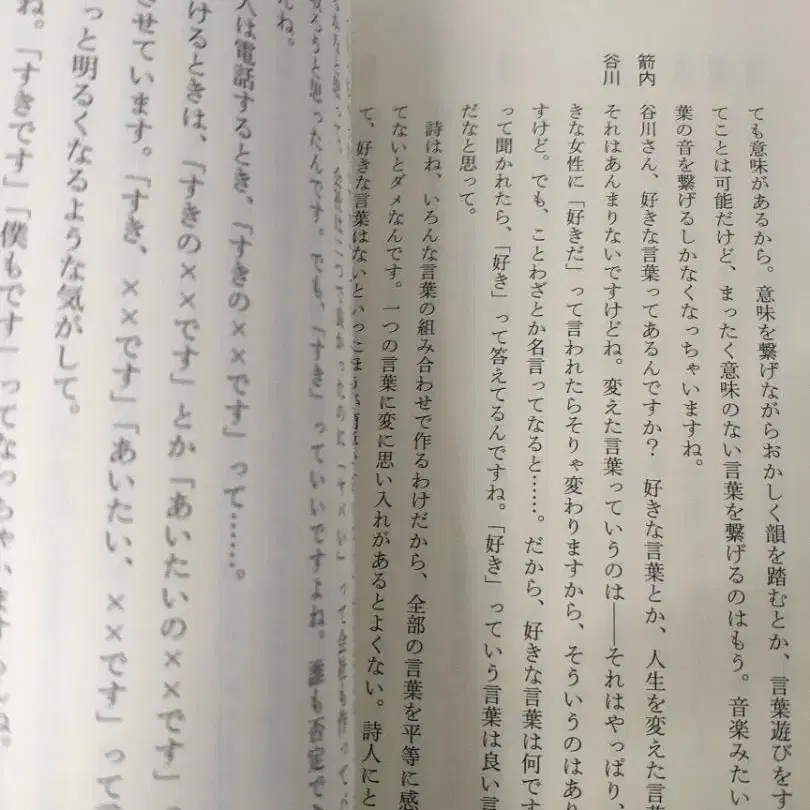 ても意味があるから。意味を繋げながらおかしく韻を踏むとか、言葉遊びをす
てことは可能だけど、まったく意味のない言葉を繋げるのはもう。音楽みたい
葉の音を繋げるしかなくなっちゃいますね。
箭内 谷川さん、好きな言葉ってあるんですか? 好きな言葉とか、人生を変えた言
谷川 それはあんまりないですけどね。変えた言葉っていうのは――それはやっぱり、
きな女性に「好きだ」って言われたらそりゃ変わりますから、そういうのはあり
すけど。でも、ことわざとか名言ってなると……。だから、好きな言葉は何です
って聞かれたら、「好き」って答えてるんですね。「好き」っていう言葉は良い言
だなと思って。
詩はね、いろんな言葉の組み合わせで作るわけだから、全部の言葉を平等に感
てないとダメなんです。一つの言葉に変に思い入れがあるとよくない。詩人にと
て、好きな言葉はないといったほうが
思ったんです。でも、「すき」っていいですよね。誰も否定で
んね。
人は電話するとき、「すきの××です」って……。
けるときは、「すきの××です」とか「あいたいの××です」っ
させています。「すき、××です」「あいたい、××です」って
っと明るくなるような気がして。
ね。「すきです」「僕もです」ってなっちゃいますもんね。